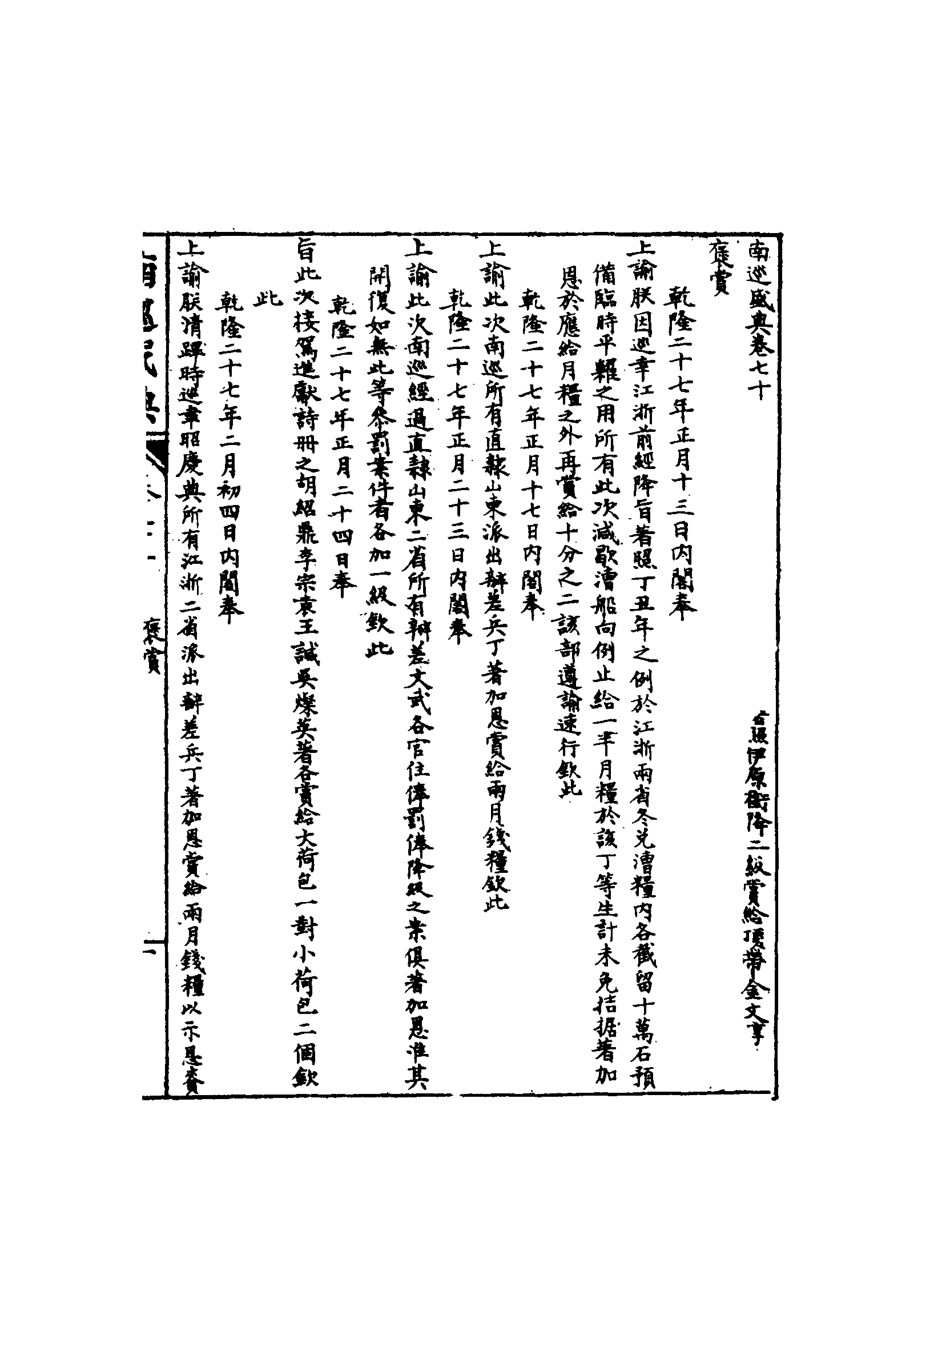 南巡盛典卷七十
照伊原銜降二級賞給頂帶金文享
褒賞
乾隆二十七年正月十三日内閣奉
上諭朕因巡幸江浙前經降旨著照丁丑年之例於江浙兩省冬兌漕糧内各截留十萬石預
備臨時平糶之用所有此次減歇漕船向例止給一半月糧於該丁等生計未免拮据著加
恩於應給月糧之外再賞給十分之二該部遵諭速行欽此
乾隆二十七年正月十七日内閣奉
上諭此次南巡所有直隸山東派出辦差兵丁著加恩賞給兩月錢糧欽此
乾隆二十七年正月二十三日内閣奉
上諭此次南巡經過直隸山東二省所有辦差文武各官住俸罰俸降級之案俱著加恩准其
開復如無此等參罰案件者各加一級欽此
乾隆二十七年正月二十四日奉
旨此次接駕進獻詩冊之胡紹鼎李宗袁王誠吳燦英著各賞給大荷包一對小荷包二個欽
此
乾隆二十七年二月初四日内閣奉
上諭朕清蹕時巡聿昭慶典所有江浙二省派出辦差兵丁著加恩賞給兩月錢糧以示恩賚
南巡盛典 褒賞